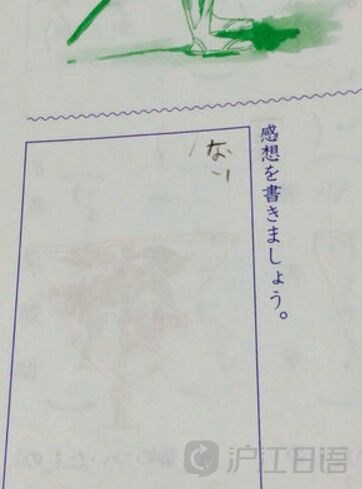 感想を書きましょう。
ない
沪江日语